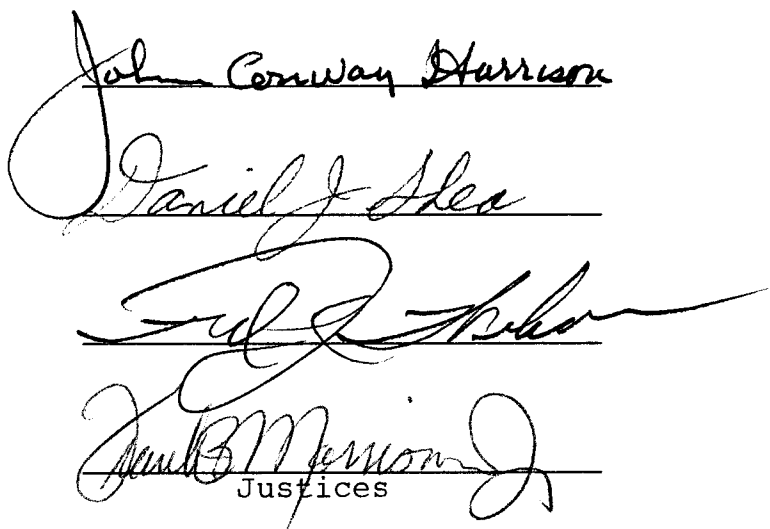 John Conway Harrison
Daniel J Shea
Fred J
Frank B Morrison Jr
Justices